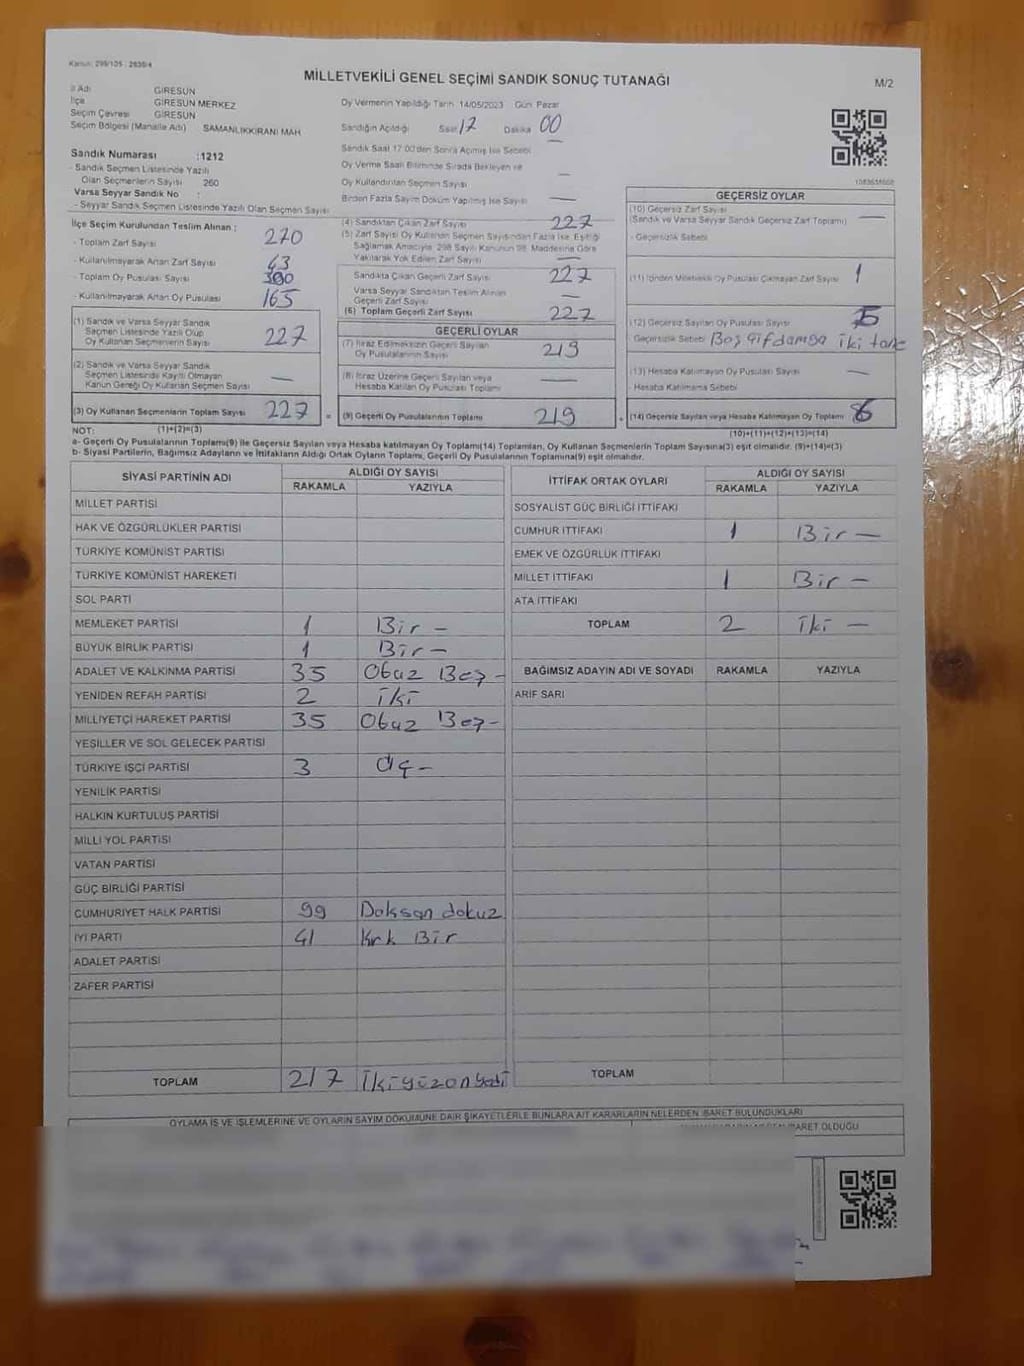 Kanun: 298/105 - 2839/4
MİLLETVEKİLİ GENEL SEÇİMİ SANDIK SONUÇ TUTANAĞI
M/2
İl Adı GİRESUN
İlçe GİRESUN MERKEZ
Seçim Çevresi GİRESUN
Seçim Bölgesi (Mahalle Adı) SAMANLIKKIRANI MAH
Sandık Numarası :1212
- Sandık Seçmen Listesinde Yazılı
Olan Seçmenlerin Sayısı 260
Varsa Seyyar Sandık No :
- Seyyar Sandık Seçmen Listesinde Yazılı Olan Seçmen Sayısı
Oy Vermenin Yapıldığı Tarih 14/05/2023 Gün Pazar
Sandığın Açıldığı Saat 17 Dakika 00
Sandık Saat 17:00'den Sonra Açılmış İse Sebebi —
Oy Verme Saati Bitiminde Sırada Bekleyen ve
Oy Kullandırılan Seçmen Sayısı —
Birden Fazla Sayım Döküm Yapılmış İse Sayısı —
İlçe Seçim Kurulundan Teslim Alınan :
- Toplam Zarf Sayısı 270
- Kullanılmayarak Artan Zarf Sayısı 43
- Toplam Oy Pusulası Sayısı
- Kullanılmayarak Artan Oy Pusulası 165
(1) Sandık ve Varsa Seyyar Sandık
Seçmen Listesinde Yazılı Olup
Oy Kullanan Seçmenlerin Sayısı 227
(2) Sandık ve Varsa Seyyar Sandık
Seçmen Listesinde Kayıtlı Olmayan
Kanun Gereği Oy Kullanan Seçmen Sayısı —
(3) Oy Kullanan Seçmenlerin Toplam Sayısı 227
(4) Sandıktan Çıkan Zarf Sayısı 227
(5) Zarf Sayısı Oy Kullanan Seçmen Sayısından Fazla İse Eşitliği
Sağlamak Amacıyla 298 Sayılı Kanunun 98. Maddesine Göre
Yakılarak Yok Edilen Zarf Sayısı —
Sandıkta Çıkan Geçerli Zarf Sayısı 227
Varsa Seyyar Sandıktan Teslim Alınan
Geçerli Zarf Sayısı —
(6) Toplam Geçerli Zarf Sayısı 227
GEÇERLİ OYLAR
(7) İtiraz Edilmeksizin Geçerli Sayılan
Oy Pusulalarının Sayısı 219
(8) İtiraz Üzerine Geçerli Sayılan veya
Hesaba Katılan Oy Pusulası Toplamı —
(9) Geçerli Oy Pusulalarının Toplamı 219
GEÇERSİZ OYLAR
(10) Geçersiz Zarf Sayısı —
(Sandık ve Varsa Seyyar Sandık Geçersiz Zarf Toplamı)
- Geçersizlik Sebebi
(11) İçinden Milletvekili Oy Pusulası Çıkmayan Zarf Sayısı 1
(12) Geçersiz Sayılan Oy Pusulası Sayısı
- Geçersizlik Sebebi Boş iki
(13) Hesaba Katılmayan Oy Pusulası Sayısı —
- Hesaba Katılmama Sebebi
(14) Geçersiz Sayılan veya Hesaba Katılmayan Oy Toplamı
NOT: (1)+(2)=(3)
(10)+(11)+(12)+(13)=(14)
a- Geçerli Oy Pusulalarının Toplamı(9) ile Geçersiz Sayılan veya Hesaba katılmayan Oy Toplamı(14) Toplamları, Oy Kullanan Seçmenlerin Toplam Sayısına(3) eşit olmalıdır. (9)+(14)=(3)
b- Siyasi Partilerin, Bağımsız Adayların ve İttifakların Aldığı Ortak Oyların Toplamı, Geçerli Oy Pusulalarının Toplamına(9) eşit olmalıdır.
SİYASİ PARTİNİN ADI ALDIĞI OY SAYISI
RAKAMLA YAZIYLA
MİLLET PARTİSİ
HAK VE ÖZGÜRLÜKLER PARTİSİ
TÜRKİYE KOMÜNİST PARTİSİ
TÜRKİYE KOMÜNİST HAREKETİ
SOL PARTİ
MEMLEKET PARTİSİ 1 Bir —
BÜYÜK BİRLİK PARTİSİ 1 Bir —
ADALET VE KALKINMA PARTİSİ 35 Otuz Beş —
YENİDEN REFAH PARTİSİ 2 iki
MİLLİYETÇİ HAREKET PARTİSİ 35 Otuz Beş —
YEŞİLLER VE SOL GELECEK PARTİSİ
TÜRKİYE İŞÇİ PARTİSİ 3 üç —
YENİLİK PARTİSİ
HALKIN KURTULUŞ PARTİSİ
MİLLİ YOL PARTİSİ
VATAN PARTİSİ
GÜÇ BİRLİĞİ PARTİSİ
CUMHURİYET HALK PARTİSİ 99 Doksan dokuz
İYİ PARTİ 41 Kırk Bir
ADALET PARTİSİ
ZAFER PARTİSİ
TOPLAM 217 İkiyüzonyedi
İTTİFAK ORTAK OYLARI ALDIĞI OY SAYISI
RAKAMLA YAZIYLA
SOSYALİST GÜÇ BİRLİĞİ İTTİFAKI
CUMHUR İTTİFAKI 1 Bir —
EMEK VE ÖZGÜRLÜK İTTİFAKI
MİLLET İTTİFAKI 1 Bir —
ATA İTTİFAKI
TOPLAM 2 iki —
BAĞIMSIZ ADAYIN ADI VE SOYADI RAKAMLA YAZIYLA
ARİF SARI
TOPLAM
OYLAMA İŞ VE İŞLEMLERİNE VE OYLARIN SAYIM DÖKÜMÜNE DAİR ŞİKAYETLERLE BUNLARA AİT KARARLARIN NELERDEN İBARET BULUNDUKLARI
İBARET OLDUĞU